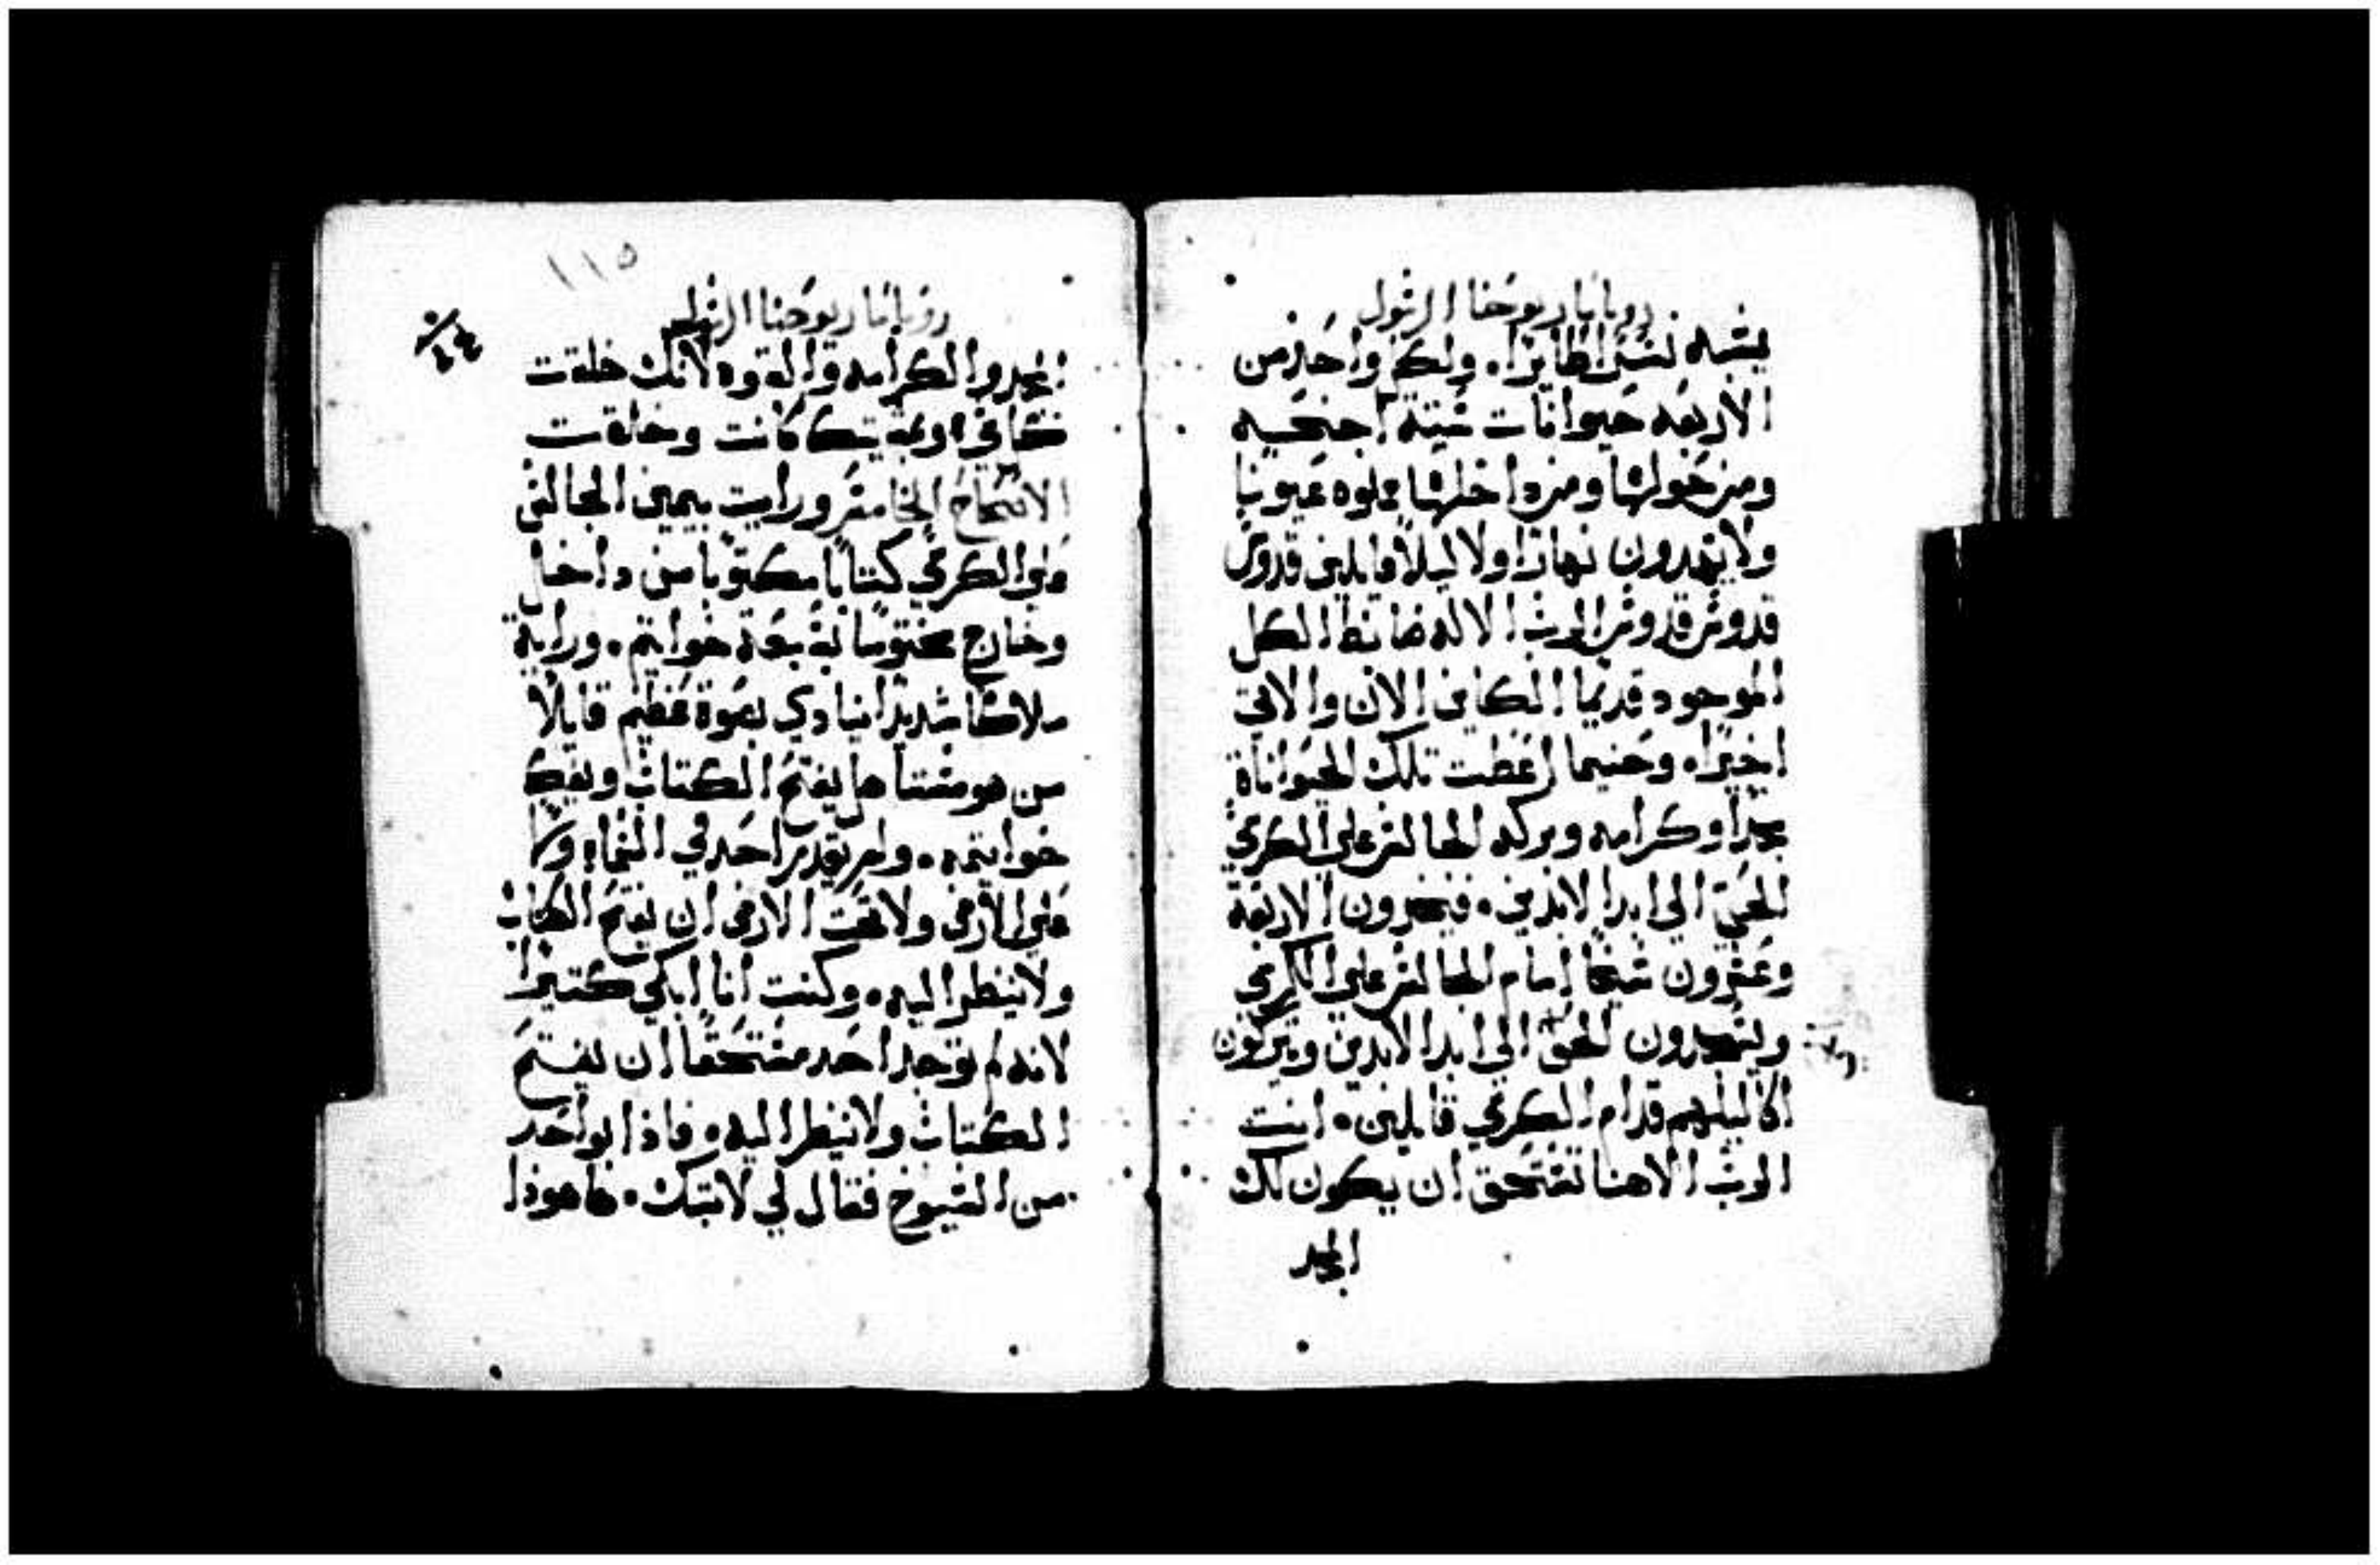 رويا مار يوحنا الرسول
يشبه نسرًا طايرًا. ولكل واحد من
الاربعه حيوانات ستة اجنحيه
ومن حولها ومن داخلها مملوه عيونا
ولا يهدون نهارا ولا ليلًا قايلين قدوس
قدوس قدوس الرب الاله ضابط الكل
الموجود قديما الكاين الان والاتي
اخيرا. وحنيما اعطت تلك الحيواناة
مجدا وكرامه وبركه للجالس علي الكرسي
للحي الي ابد الابدين. فيخرون الاربعة
وعشرون شيخا امام الجالس علي الكرسي
ويسجدون للحي الي ابد الابدين ويتركون
اكاليلهم قدام الكرسي قايلين. انت
الرب الاهنا تستحق ان يكون لك
المجد
١١٥
رويا مار يوحنا الرسول
المجد والكرامه والقوه لانك خلقت
كل شي وبمشيتك كانت وخلقت
الاصحاح الخامس ورايت بيمين الجالس
علي الكرسي كتابا مكتوبا من داخل
وخارج مختوما بسبعة خواتم. ورايت
ملاكا شديدا ينادي بصوة عظيم قايلًا
من هو مستاهل يفتح الكتاب ويفك
خواتيمه. ولم يقدر احد في السماء ولا
علي الارض ولا تحت الارض ان يفتح الكتاب
ولا ينظر اليه. وكنت انا ابكي كتيرا
لانه لم يوجد احد مستحقا ان يفتح
الكتاب ولا ينظر اليه. فاذا بواحد
من الشيوخ فقال لي لا تبك. ها هوذا